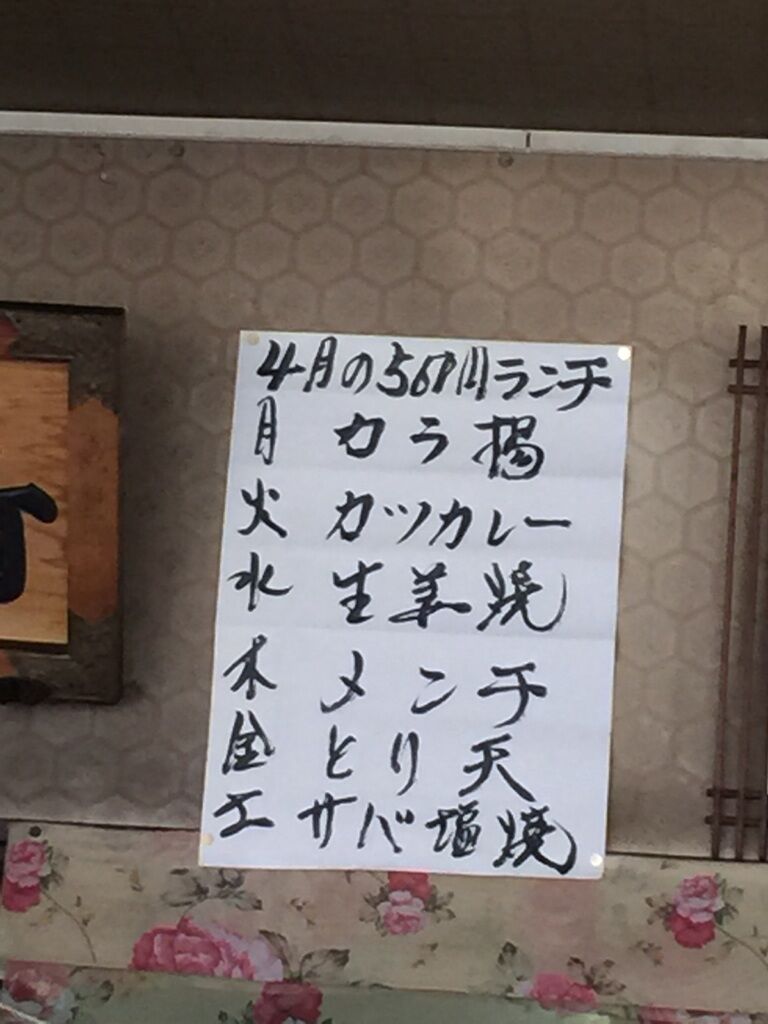 4月の568円ランチ
月 カラ揚
火 カツカレー
水 生姜焼
木 メンチ
金 とり天
土 サバ塩焼
す